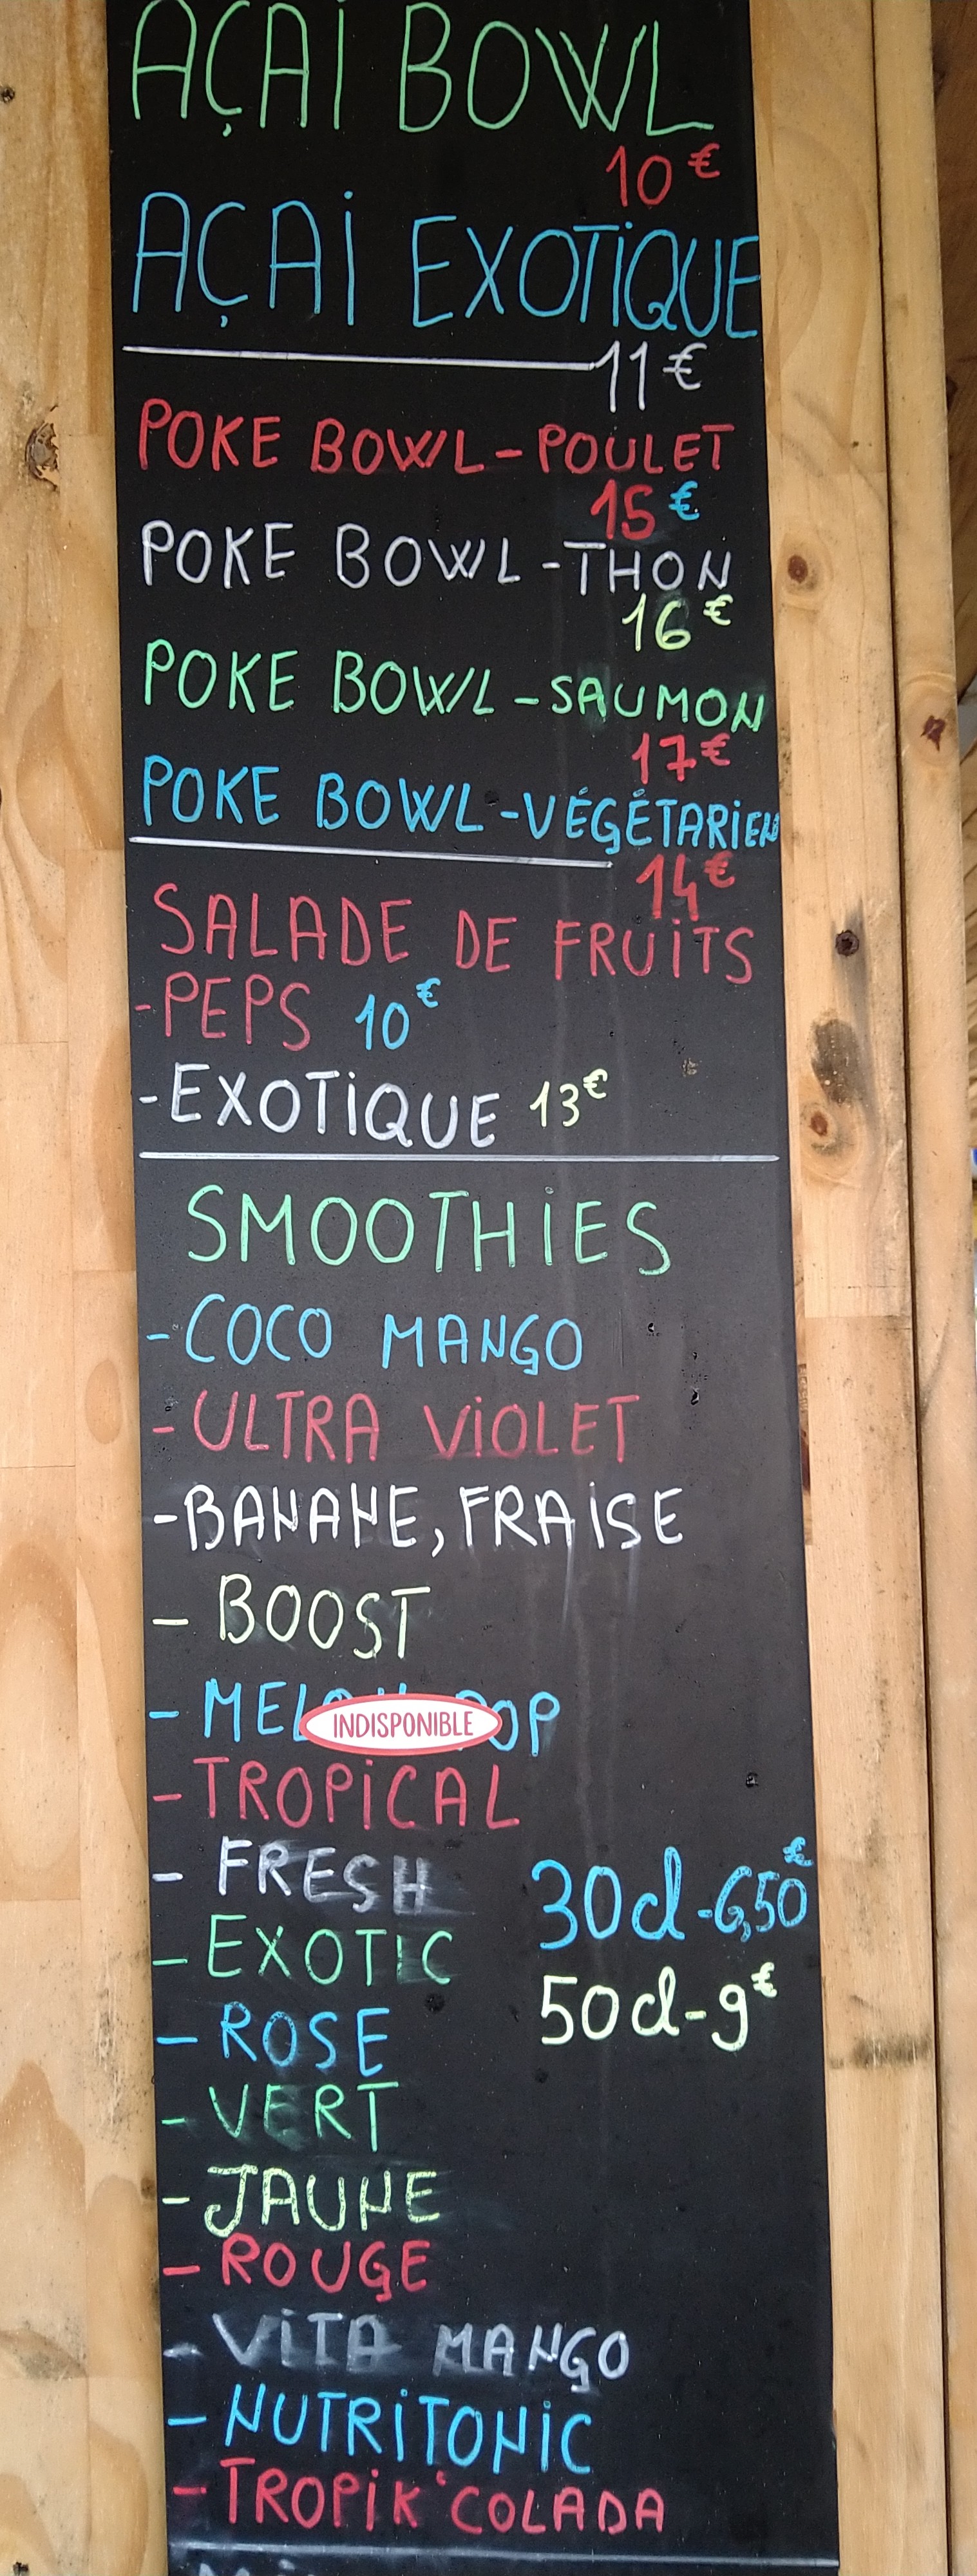 AÇAİ BOWL
10€
AÇAİ EXOTİQUE
11€
POKE BOWL-POULET
15€
POKE BOWL-THON
16€
POKE BOWL-SAUMON
17€
POKE BOWL-VÉGÉTARİEN
14€
SALADE DE FRUİTS
-PEPS 10€
-EXOTİQUE 13€
SMOOTHİES
-COCO MANGO
-ULTRA VİOLET
-BANANE, FRAİSE
- BOOST
- MEL OP
INDISPONIBLE
- TROPİCAL
- FRESH
30cl-6,50€
- EXOTIC
50cl-9€
- ROSE
- VERT
- JAUNE
- ROUGE
- VİTA MANGO
- NUTRİTONİC
- TROPİK'COLADA